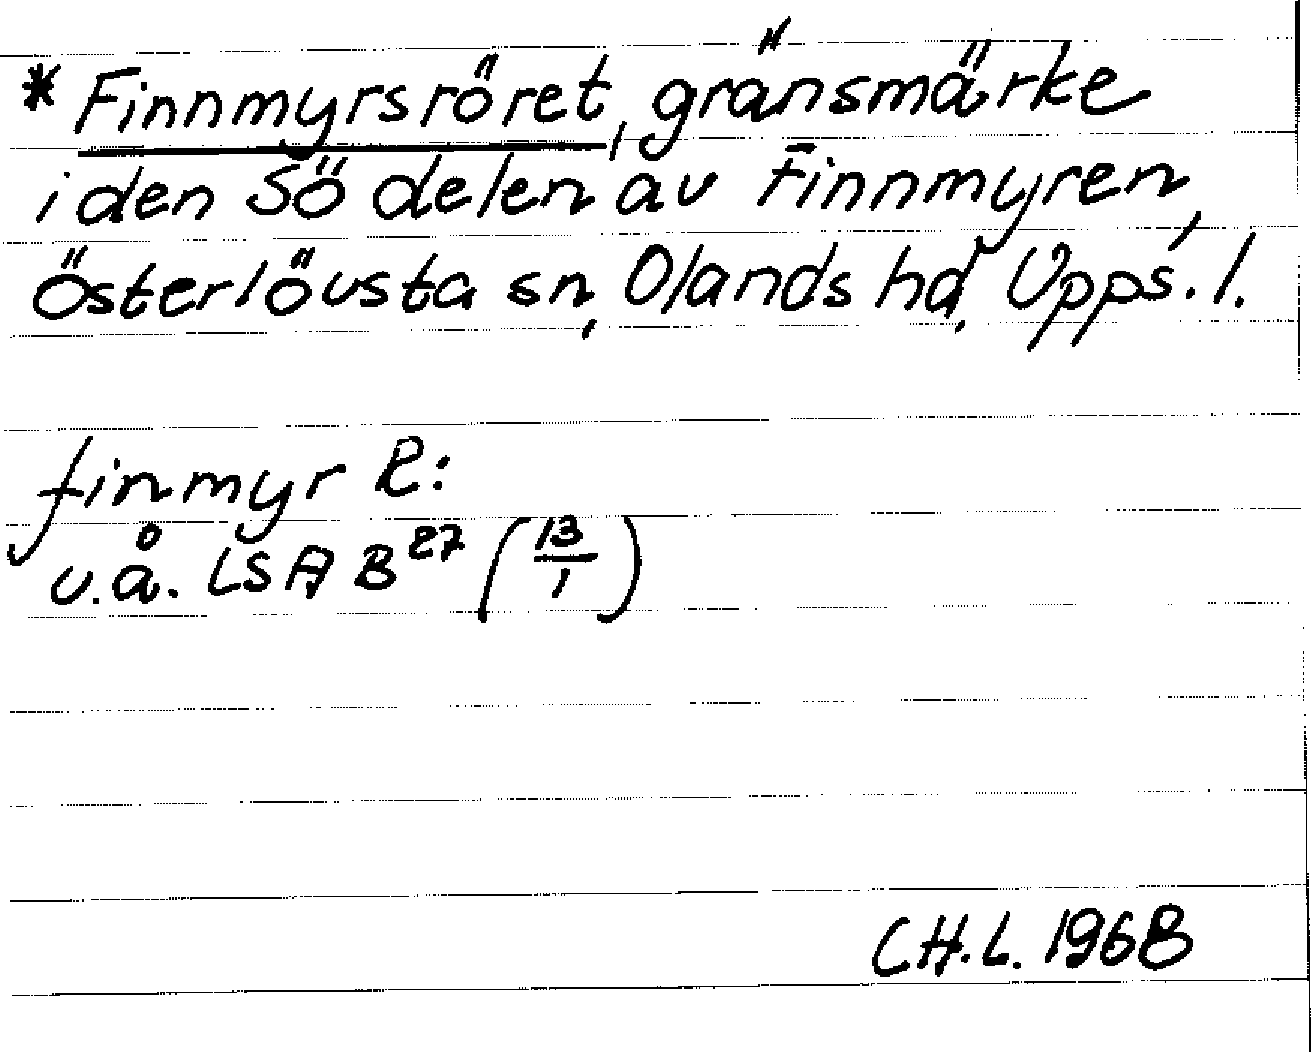 * Finnmyrsröret, gränsmärke
i den Sö delen av Finnmyren,
Österlövsta sn, Olands hd, Upps. l.
finmyr R:
u.å. LSA B27 (13/1)
C.H.L. 1968